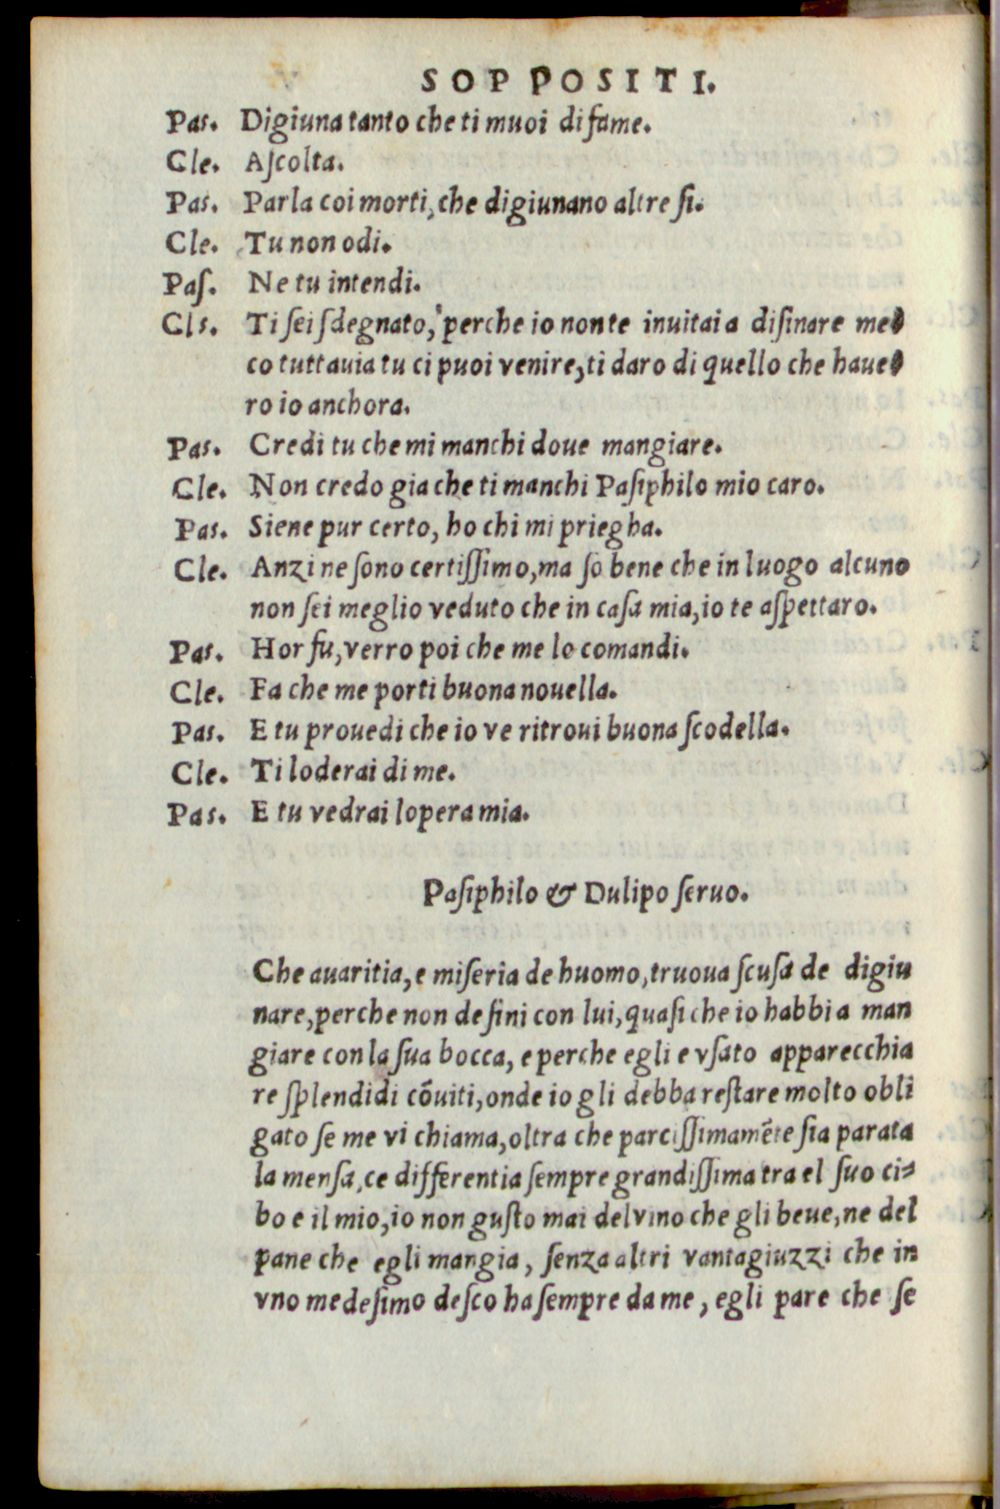 SOPPOSITI.
Pas. Digiuna tanto che ti muoi di fame.
Cle. Aſcolta.
Pas. Parla coi morti, che digiunano altre ſi.
Cle. Tu non odi.
Paſ. Ne tu intendi.
Cls. Ti ſei ſdegnato, perche io non te inuitai a diſinare me-
co tuttauia tu ci puoi venire, ti daro di quello che haue-
ro io anchora.
Pas. Credi tu che mi manchi doue mangiare.
Cle. Non credo gia che ti manchi Paſiphilo mio caro.
Pas. Siene pur certo, ho chi mi priegha.
Cle. Anzi ne ſono certiſſimo, ma ſo bene che in luogo alcuno
non ſei meglio veduto che in caſa mia, io te aſpettaro.
Pas. Hor ſu, verro poi che me lo comandi.
Cle. Fa che me porti buona nouella.
Pas. E tu prouedi che io ve ritroui buona ſcodella.
Cle. Ti loderai di me.
Pas. E tu vedrai lopera mia.
Paſiphilo & Dulipo ſeruo.
Che auaritia, e miſeria de huomo, truoua ſcuſa de digiu
nare, perche non deſini con lui, quaſi che io habbi a man
giare con la ſua bocca, e perche egli e vſato apparecchia
re ſplendidi cōuiti, onde io gli debba reſtare molto obli
gato ſe me vi chiama, oltra che parciſſimamēte ſia parata
la menſa, ce differentia ſempre grandiſſima tra el ſuo ci-
bo e il mio, io non guſto mai del vino che gli beue, ne del
pane che egli mangia, ſenza altri vantagiuzzi che in
vno medeſimo deſco ha ſempre da me, egli pare che ſe